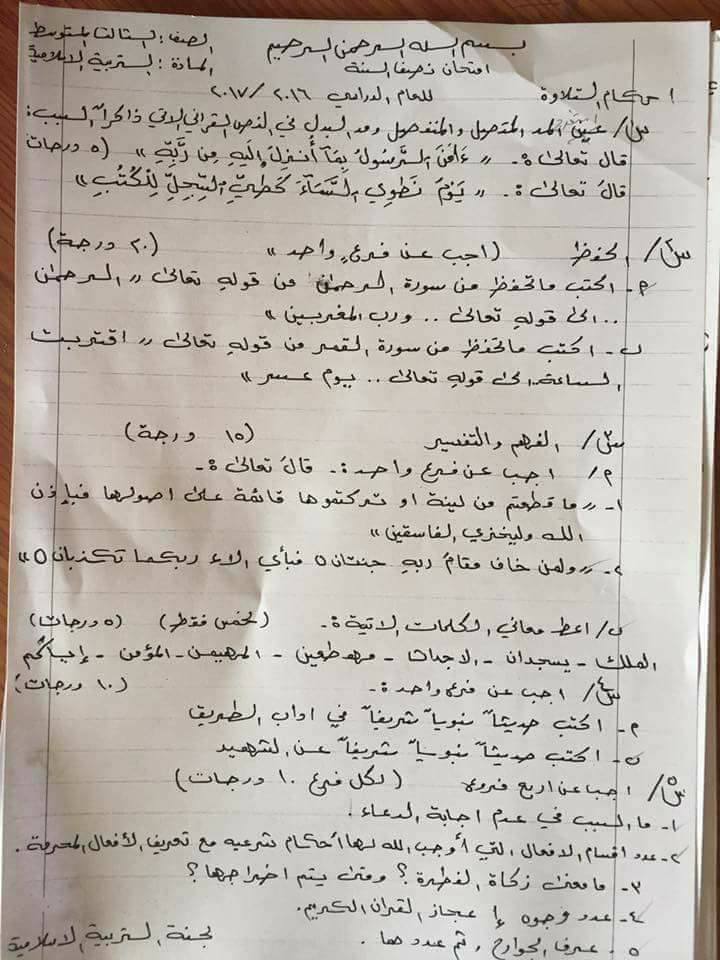 بسم الله الرحمن الرحيم
الصف: الثالث المتوسط
امتحان نصف السنة
المادة: التربية الاسلامية
احكام التلاوة
للعام الدراسي ٢٠١٦ / ٢٠١٧
س١/ عين المد المتصل والمنفصل ومد البدل في النص القرآني الآتي ذاكراً السبب:
قال تعالى: "ءَامَنَ الرَّسُولُ بِمَآ أُنزِلَ إِلَيهِ مِن رَبِّهِ" (٥ درجات)
قالَ تعالى: "يَوْمَ نَطْوِي السَّمَآءَ كَطَيِّ السِّجِلِّ لِلْكُتُبِ"
س٢/ الحفظ (اجب عن فرعٍ واحد) (٢٠ درجة)
م- اكتب ماتحفظ من سورة الرحمان من قوله تعالى " الرحمان
.. الى قوله تعالى .. ورب المغربين "
ب- اكتب ماتحفظ من سورة القمر من قوله تعالى " اقتربت
الساعة الى قوله تعالى .. يوم عسر "
س٣/ الفهم والتفسير (١٥ درجة)
م/ اجب عن فرع واحد: قالَ تعالى:-
١- " ما قطعتم من لينة او تركتموها قائمة على اصولها فبإذن
الله وليخزي الفاسقين "
٢- " ولمن خاف مقامَ ربهِ جنتان ٥ فبأي الاء ربكما تكذبان ٥ "
ب/ اعط معاني الكلمات الاتية:- (لخمس فقط) (٥ درجات)
الملك - يسجدان - الاجداث - مهطعين - المهيمن - المؤمن -
س٤/ اجب عن فرع واحد:- (١٠ درجات)
م- اكتب حديثاً نبوياً شريفاً في اداب الطريق
ب- اكتب حديثاً نبوياً شريفاً عن الشهيد
س٥/ اجب عن اربع فروع (لكل فرع ١٠ درجات)
١- ما السبب في عدم اجابة الدعاء.
٢- عدد اقسام الافعال التي أوجب الله لها أحكام شرعيه مع تعريف الأفعال المحرمة.
٣- مامعنى زكاة الفطرة؟ ومتى يتم اخراجها؟
٤- عدد وجوه إعجاز القران الكريم.
٥- عرف الجوارح، ثم عددها.
لجنة التربية الاسلامية